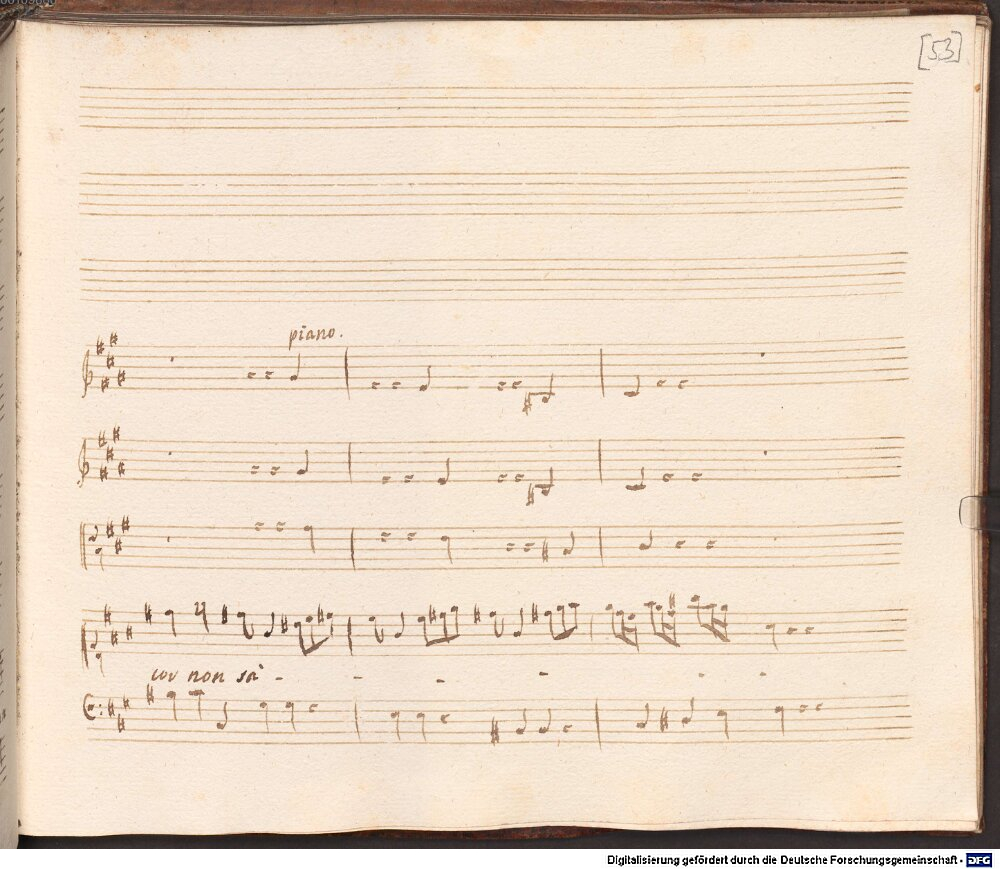 [53]
piano.
cor non sà - - - - - -
Digitalisierung gefördert durch die Deutsche Forschungsgemeinschaft - DFG